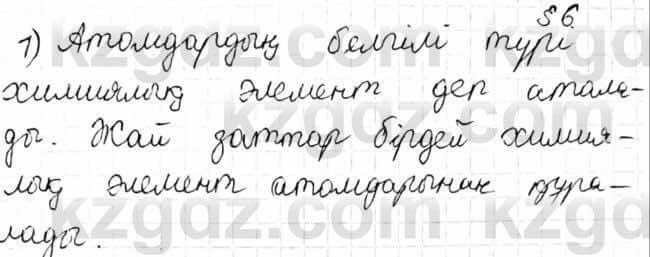 § 6.
1) Атомдардың белгілі түрі
химиялық элемент деп атала-
ды. Жай заттар бірдей химия-
лық элемент атомдарынан құра-
лады.
kzgdz.com